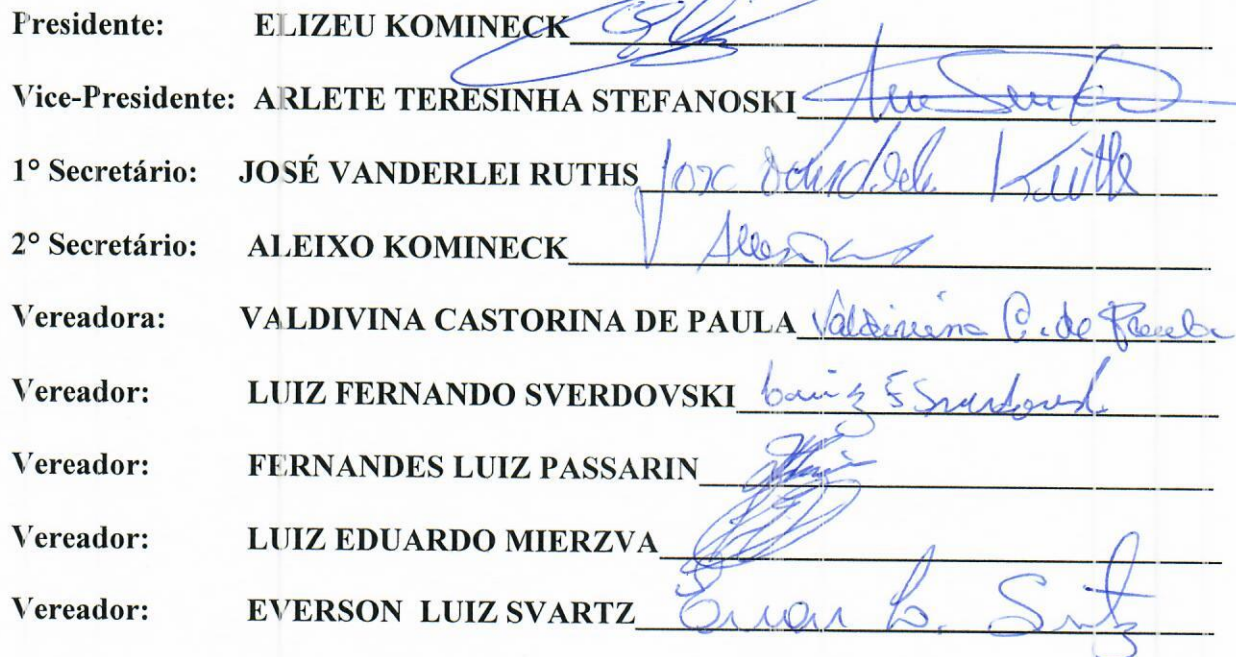 Presidente: ELIZEU KOMINECK
Vice-Presidente: ARLETE TERESINHA STEFANOSKI
1° Secretário: JOSÉ VANDERLEI RUTHS
2° Secretário: ALEIXO KOMINECK
Vereadora: VALDIVINA CASTORINA DE PAULA Valdivina C. de Paula
Vereador: LUIZ FERNANDO SVERDOVSKI
Vereador: FERNANDES LUIZ PASSARIN
Vereador: LUIZ EDUARDO MIERZVA
Vereador: EVERSON LUIZ SVARTZ